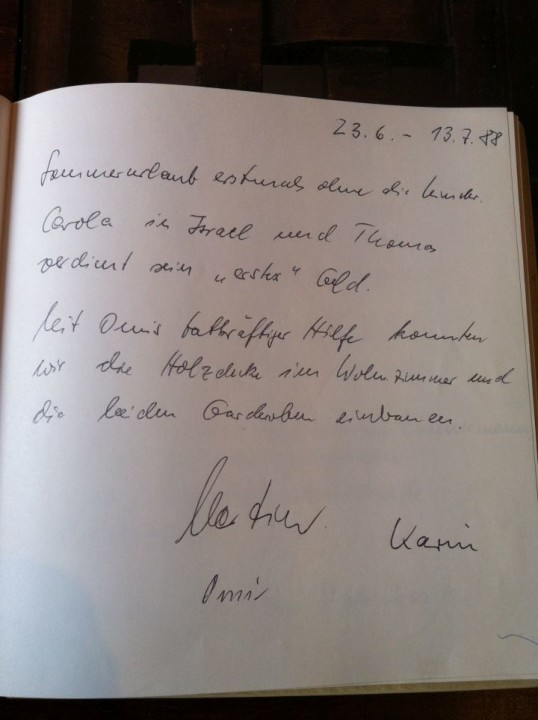 23.6. - 13.7.88
Sommerurlaub erstmals ohne die Kinder.
Carola in Israel und Thomas
verdient sein „erstes" Geld.
Mit Omis tatkräftiger Hilfe konnten
wir die Holzdecke im Wohnzimmer und
die beiden Garderoben einbauen.
Martin
Karin
Omi